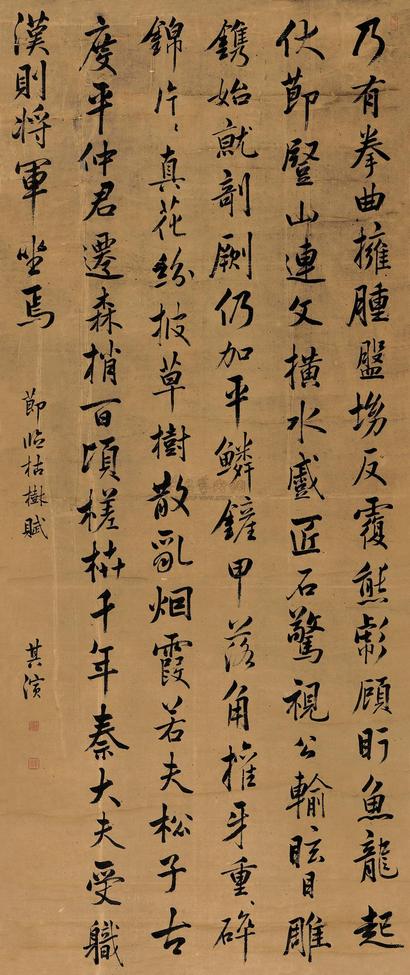 乃有拳曲擁腫盤坳反覆熊彪顧盼魚龍起
伏節豎山連文橫水蹙匠石驚視公輸眩目雕
鐫始就剞劂仍加平鱗鏟甲落角摧牙重〻碎
錦片〻真花紛披草樹散亂烟霞若夫松子古
度平仲君遷森梢百頃槎枿千年秦大夫受職
漢則將軍坐焉
節臨枯樹賦
其濱